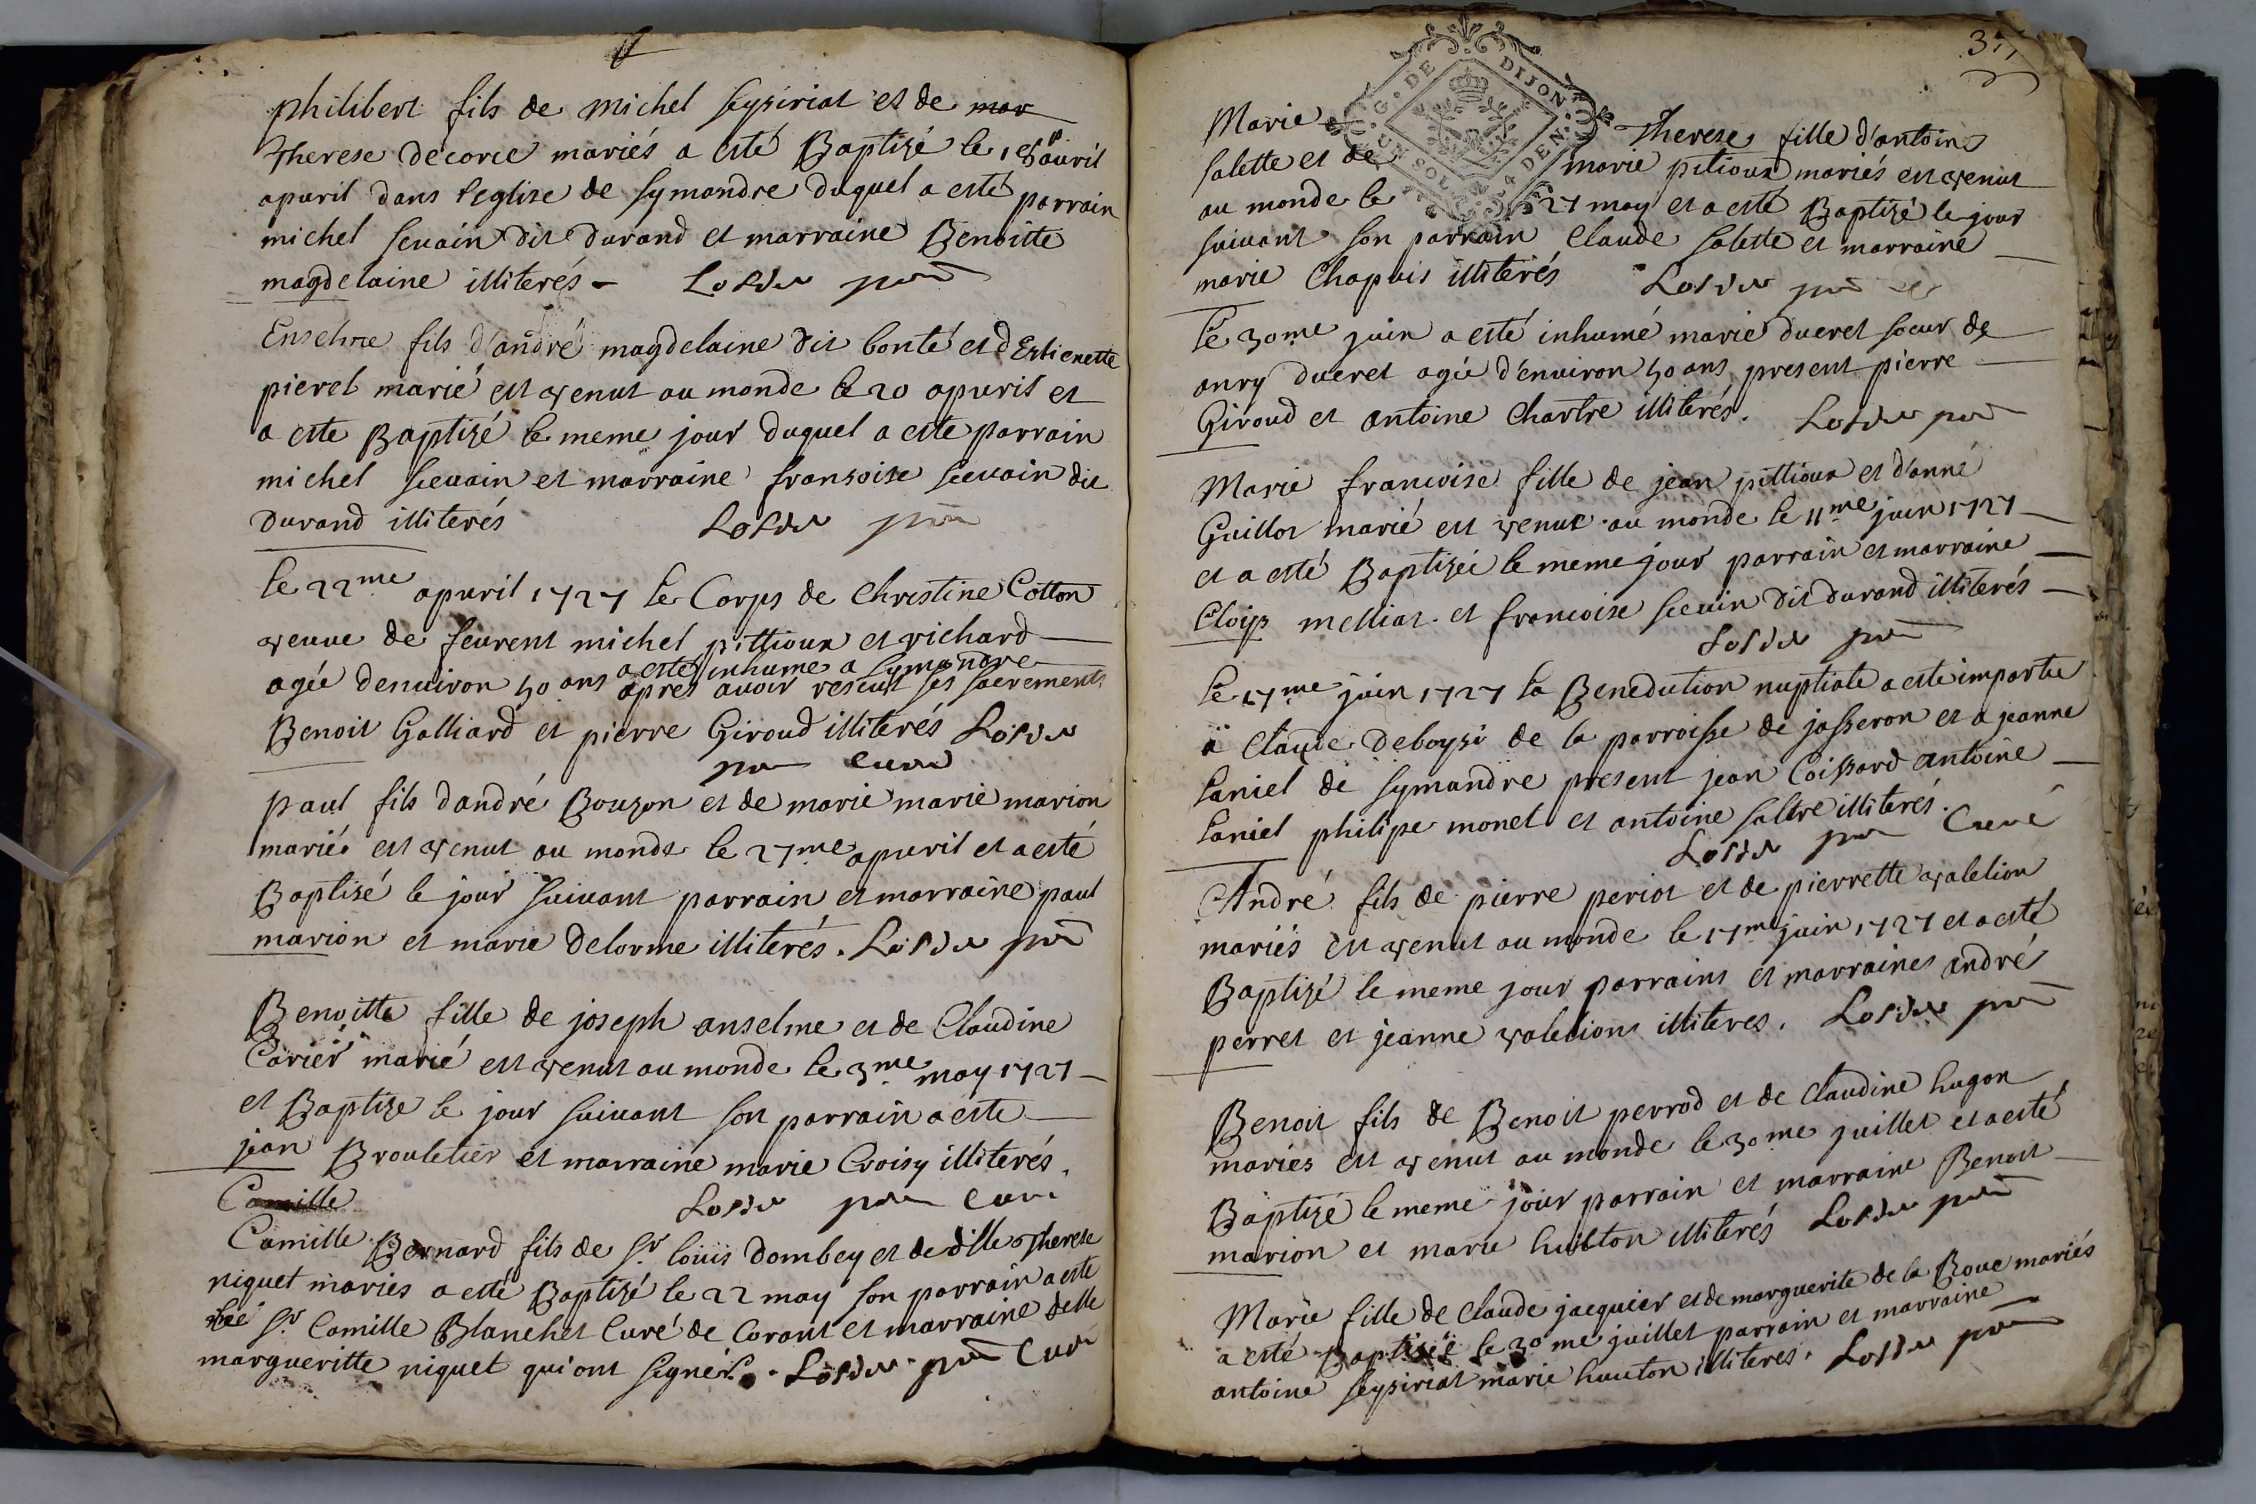 philibert fils de michel seysiriat et de mar
Therese decorce mariés a esté Baptizé le 1er auril
apuril dans l'eglise de symandre duquel a esté parrain
michel seuain dit durand et marraine Benoitte
magdelaine illiterés -
Enselme fils d'andré magdelaine dit bonté et d'Estienette
pieret marié est venut au monde le 20 apuril et
a este Baptizé le meme jour duquel a este parrain
michel seeuain et marraine fransoise seeuain dit
durand illiterés
le 22me apuril 1727 le Corps de Christine Cotton
veuue de feurent michel pittioux et richard
a esté inhumé a symandre
agée denuiron 50 ans apres auoir reseut ses sacrements
Benoit Galliard et pierre Giroud illiterés
curé
paul fils d'andré Bouzon et de marie marie marion
mariés est venut au monde le 27me apuril et a esté
Baptisé le jour suiuant parrain et marraine paul
marion et marie delorme illiterés.
Benoitte fille de joseph anselme et de Claudine
Carier marié est venut au monde le 3me may 1727
et Baptize le jour suiuant son parrain a este
jean Brouletier et marraine marie Croisy illiterés.
Camille
curé
Camille Bernard fils de Sr. louis Dombey et de dlle Therese
niquet mariés a esté Baptizé le 22 may son parrain a este
Sr Camille Blanchet Curé de Corant et marraine delle
margueritte niquet qui ont signés. Curé
377
G. DE DIJON
UN SOL 4 DEN.
Marie Therese fille d'antoine
salette et de marie pitioux mariés est venut
au monde le 27 may et a esté Baptizé le jour
suiuant son parrain Claude salette et marraine
marie Chapuis illiterés
le 30me juin a esté inhumé marie dueret soeur de
anry dueret agée d'enuiron 50 ans present pierre
Giroud et antoine Chartre illiterés.
Marie francoise fille de jean pittioux et d'anne
Guillot marié est venut au monde le 11me juin 1727
et a esté Baptizée le meme jour parrain et marraine
Cloys melliat et francoise seeuin dit durand illiterés
le 17me juin 1727 la Benediction nuptiale a este impartie
a Claude deboysi de la parroisse de jasseron et a jeanne
laniel de symandre present jean Coissard antoine
laniel philipe monet et antoine saltre illiterés.
Curé
André fils de pierre periot et de pierrette valetion
mariés est venut au monde le 17me juin 1727 et a esté
Baptizé le meme jour parrains et marraines andré
perret et jeanne valetions illiteres.
Benoit fils de Benoit perrod et de Claudine hugon
mariés est venut au monde le 30me juillet et a esté
Baptizé le meme jour parrain et marraine Benoit
marion et marie huilton illiterés
Marie fille de Claude jacquier et de marguerite de la Boue mariés
a esté Baptisée le 30me juillet parrain et marraine
antoine seysiriat marie hauton illiteres.